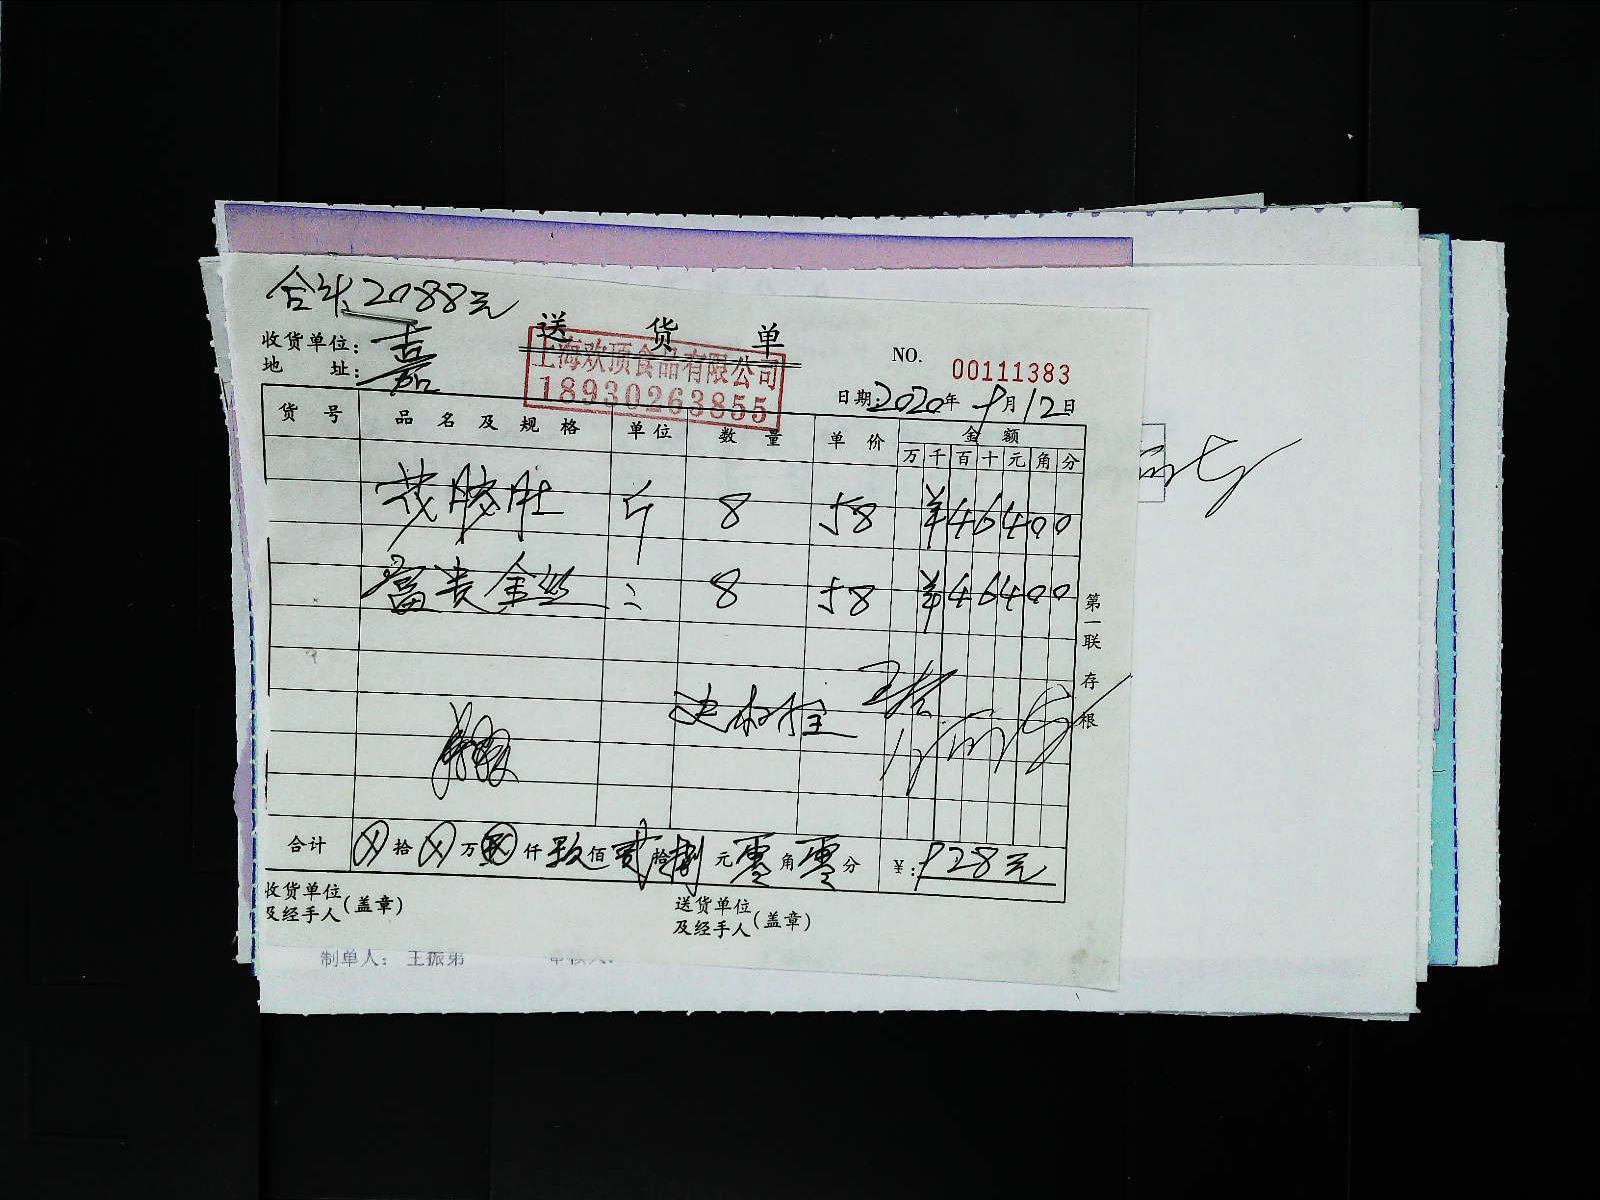 合计2088元
送货单
上海欢顶食品有限公司
18930263855
收货单位：嘉
地址：
NO. 00111383
日期 2020年9月12日
货号 品名及规格 单位 数量 单价 金额
万 千 百 十 元 角 分
斤 8 58 ¥46400
富贵金丝 8 58 ¥46400
第一联 存根
合计 拾 万 仟 玖佰贰拾捌元零角零分 ¥:928元
收货单位
及经手人(盖章)
送货单位
及经手人(盖章)
制单人： 王振弟